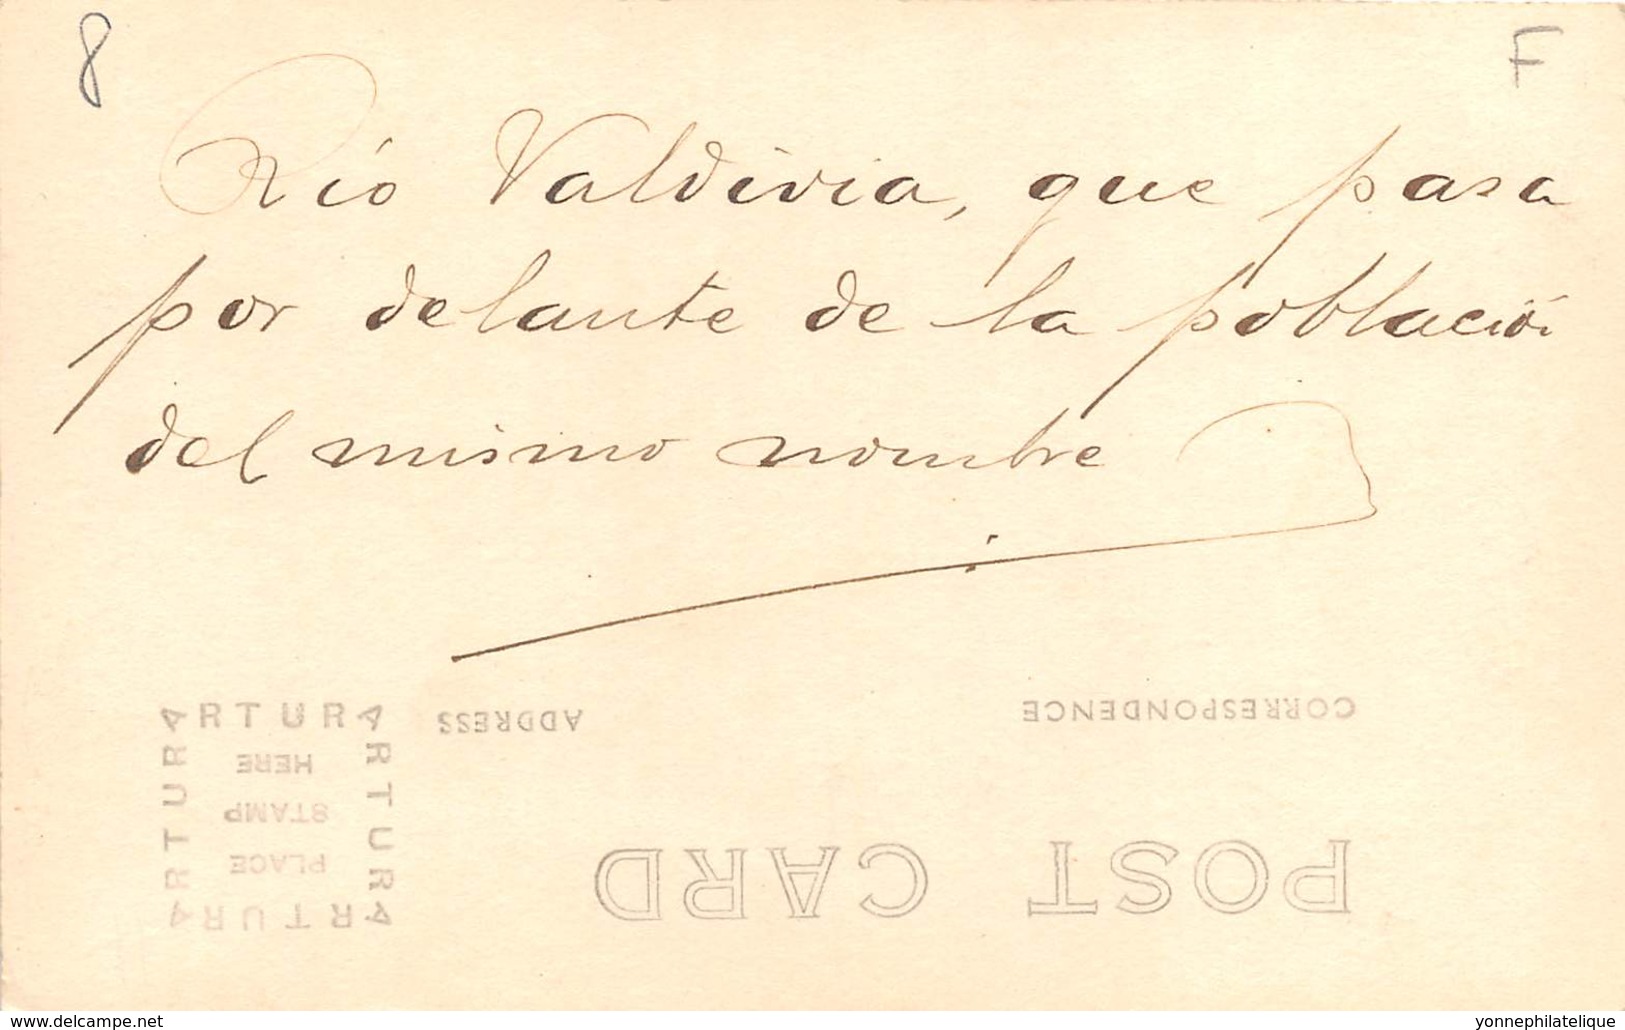 8
F
Río Valdivia, que pasa
por delante de la población
del mismo nombre
ARTURA
ARTURA
ARTURA
ARTURA
PLACE
STAMP
HERE
ADDRESS
CORRESPONDENCE
POST CARD
www.delcampe.net
yonnephilatelique